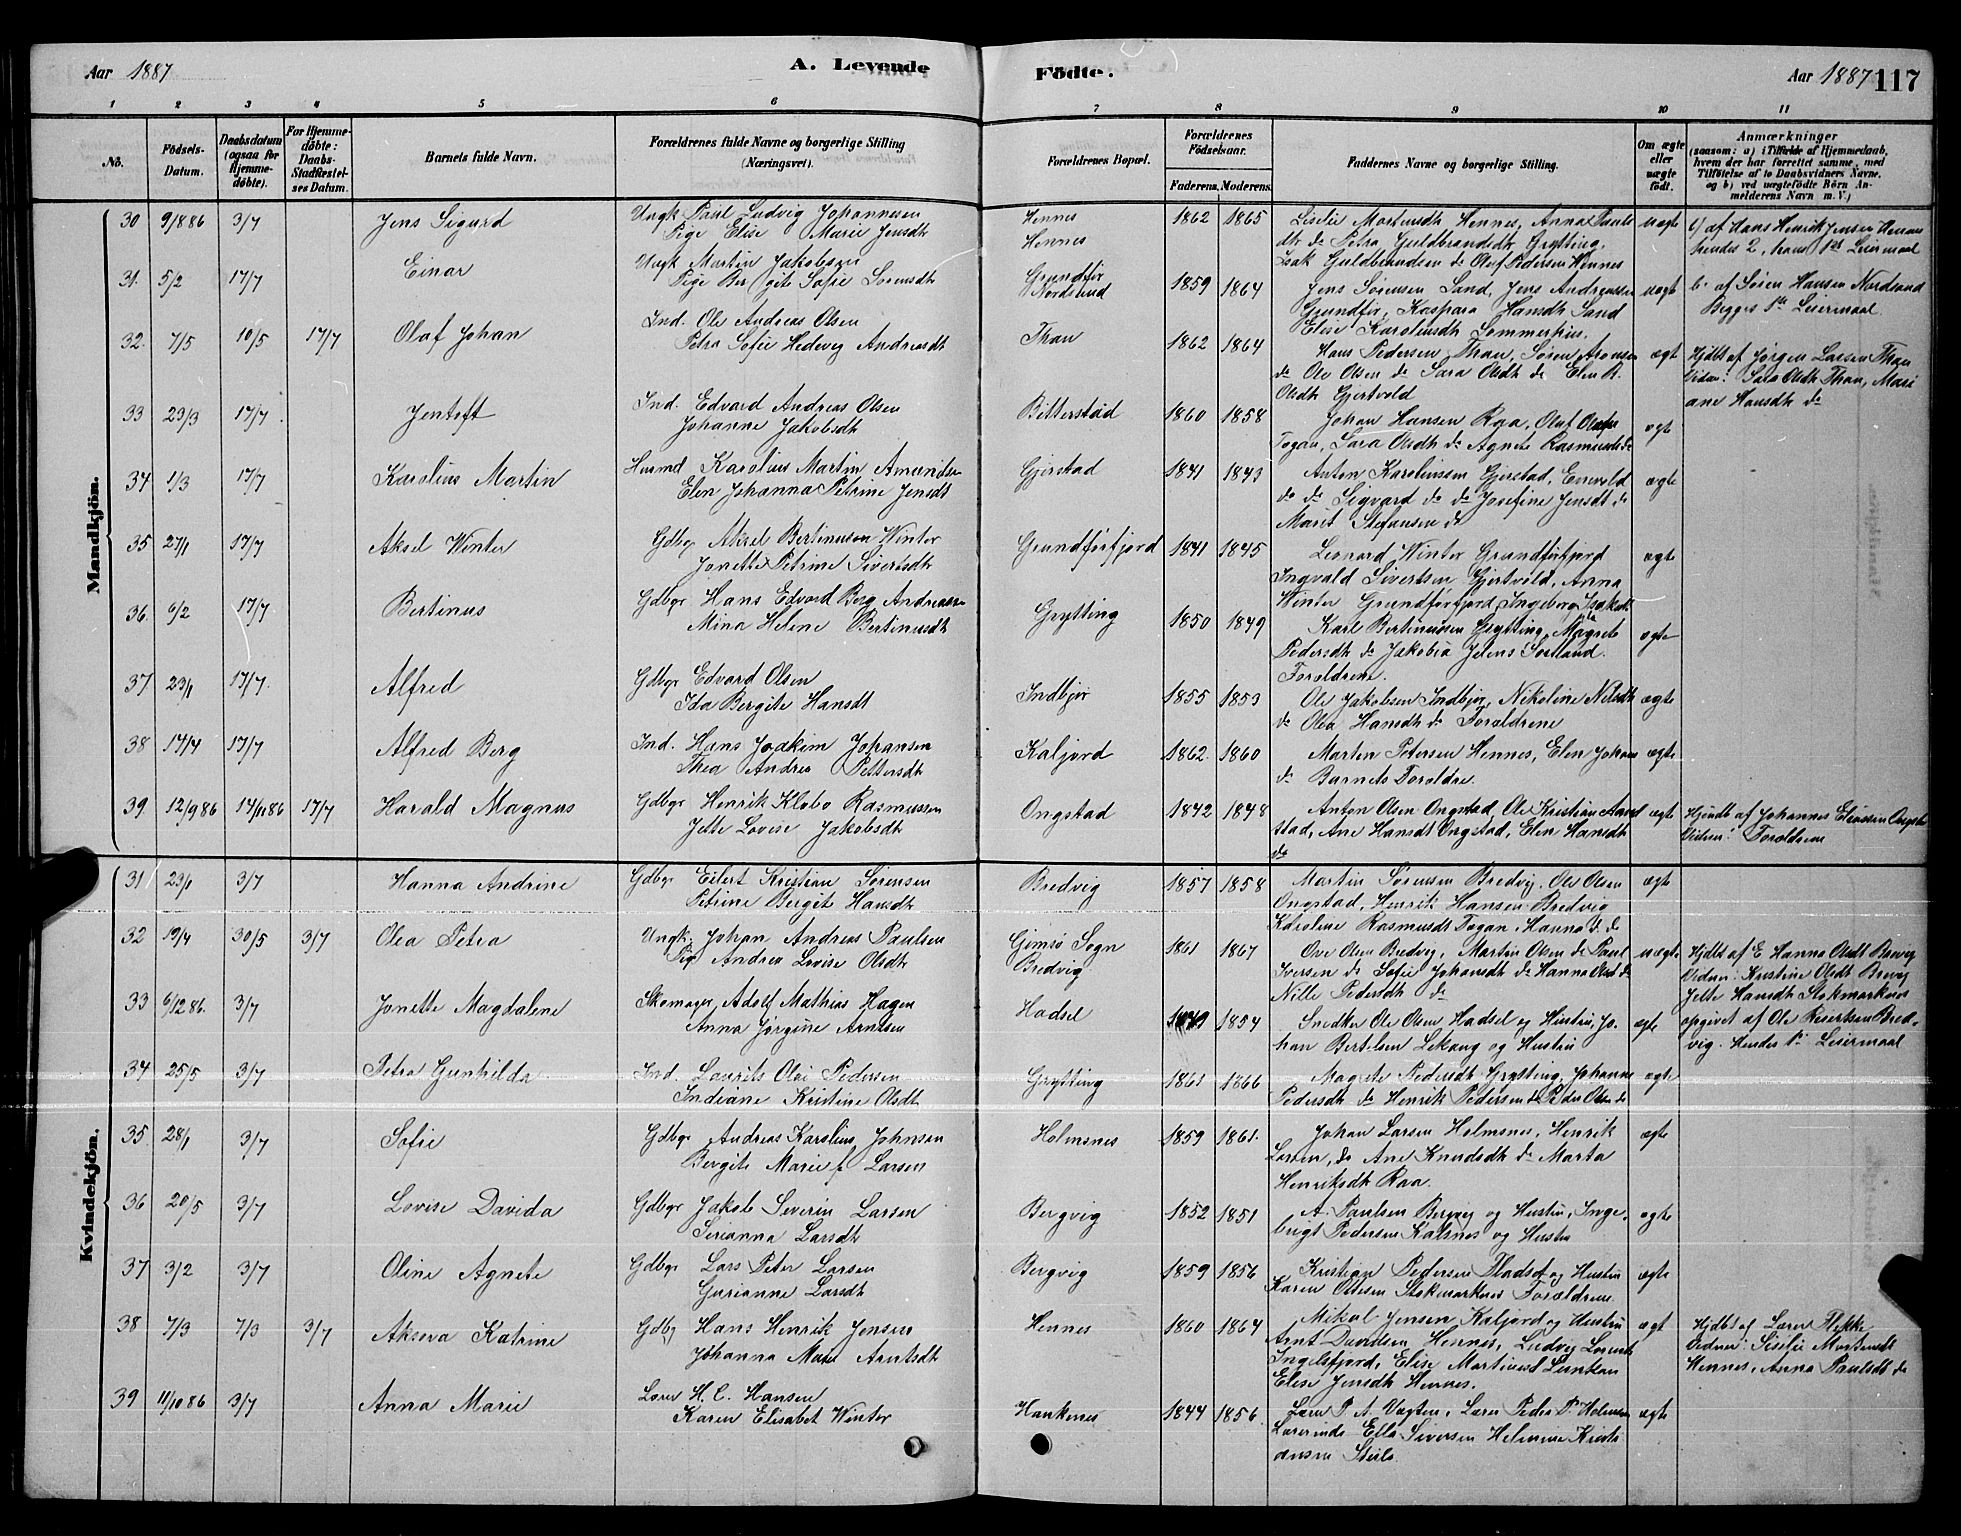 Aar 1887
A. Levende
Födte.
Aar 1887
117
1 2 3 4 5 6 7 8 9 10 11
No.
Födsels-Datum.
Daabsdatum (ogsaa for Hjemme-döbte).
For Hjemme-döbte: Daabs-Stadfæstel-ses Datum.
Barnets fulde Navn.
Forældrenes fulde Navne og borgerlige Stilling (Næringsvei).
Forældrenes Bopæl.
Forældrenes Födselsaar.
Faderens. Moderens.
Faddernes Navne og borgerlige Stilling.
Om ægte eller uægte født.
Anmærkninger
(saasom: a) i Tilfælde af Hjemmedaab,
hvem der har forrettet samme, med
Tilföielse af to Daabsvidners Navne,
og b) ved uægtefödte Börn An-
melderens Navn m. V.)
Mandkjön.
30 9/1886 3/7 Jens Sigurd
Ungk Paul Ludvig Johannesen
Pige Elise Marie Jensdtr
Hennes
Hennes
1862 1865
Liselie Mortensdtr Hennes, Anna Pauls
dtr do Petra Guldbrandsdtr Grytting,
Isak Guldbrandsen do Oluf Pedersen Hennes
uægte
b) af Hans Henrik Jensen Hennes
hendes 2, hans 1ste Leiermaal
31. 5/2 17/7 Einar
Ungk Martin Jakobsen
Pige Bergite Sofie Sörensdtr
Grundför
Nordsand
1859 1864
Jens Sörensen Sand, Jens Andreassen
Grundför, Kaspara Hansdtr Sand
Elise Karolinsdtr Sommerhus.
uægt
b. af Sören Hansen Nordsand
Begges 1ste Leiermaal
32. 7/5 10/5 17/7 Olaf Johan
Ind. Ole Andreas Olsen
Petra Sofie Hedevig Andreasdtr
Than
1862 1864
Hans Pedersen Than, Sören Aronsen
do Ole Olsen do Sara Olsdtr do Elen R.
Olsdtr Gjertvold
ægt
Hjdbt af Jörgen Larsen Than
Vidner: Sara Olsdtr Than, Mari
ane Hansdtr do
33 23/3 17/7 Jentoft
Ind. Edvard Andreas Olsen
Johanne Jakobsdtr
Bitterstad
1860 1858
Johan Hansen Raa, Oluf Olsen
Togan, Sara Olsdtr do Agnete Rasmusdtr do
ægt
34 1/3 17/7 Karolius Martin
Husmd Karolius Martin Amundsen
Elen Johanna Petrine Jensdtr
Gjerstad
1841 1843
Anton Karoliussen Gjerstad, Enevold
do do Sigvard do do Josefine Jensdtr do
Marit Stefansen do
ægte
35 27/1 17/7 Aksel Winter
Gdbgr Aksel Bertinusen Winter
Jonette Petrine Sivertsdtr
Grundförfjord
1841 1845
Leonard Winter Grundförfjord
Ingvald Sivertsen Gjertvold, Anna
Winter Grundförfjord, Ingeborg Isaksdtr
ægte
36. 6/2 17/7 Bertinus
Gdbgr Hans Edvard Berg Andreasen
Mina Helene Bertinusdtr
Grytting
1850 1849
Karl Bertinussen Grytting, Magrete
Pedersdtr do Jakobia Jelens Sortland.
Forældrene.
ægte
37 23/1 17/7. Alfred
Gdbgr Edvard Olsen
Ida Bergite Hansdtr
Indbjor
1855 1853
Ole Jakobsen Indbjor, Nikoline Nilsdtr
do Olea Hansdtr do Forældrene
ægte
38 14/4 17/7 Alfred Berg
Ind. Hans Joakim Johansen
Thea Andrea Pettersdtr
Kaljord
1862. 1860
Marten Petersen Hennes, Elen Johans
do Barnets Forældre.
ægte
39. 12/9 86 14/11 86 17/7 Harald Magnus
Gdbgr Henrik Klobo Rasmussen
Jette Lovise Jakobsdtr
Ongstad
1842 1848
Anton Olsen Ongstad, Ole Kristian
stad, Ane Hansdt Ongstad, Elen Hansdtr
do
ægte
Hjemdbt af Johannes Eliassen Ongst
Vidner: Forældrene
Kvindekjön.
31 23/1 3/7 Hanna Andrine
Gdbgr Eilert Kristian Sörensen
Petrine Bergite Hansdtr
Bredvig
1857 1858
Martin Sörensen Bredvig, Ole Olsen
Ongstad, Henrik Hansen Bredvig
Karoline Rasmusdtr Togan, Hanna do do
ægte
32 19/4 30/5 3/7 Olea Petra
Ungk. Johan Andreas Paulsen
Pige Andrea Lovise Olsdtr
Gimsö Sogn
Bredvig
1861 1867
Ove Olsen Bredvig, Martin Olsen do Paul
Iversen do Sofie Johansdtr do Hanna Olsd do
Nille Pedersdtr do
uægte
Hjdbt af E Hanna Olsdt Brevig
Vidner: Kristine Olsdt Brevig
Jette Hansdtr Stokmarknes
opgivet af Ole Reiertsen Bred-
vig. Hendes 1ste Leiermaal
33 6/12 86. 3/7 Jonette Magdalene
Skomager Adolf Mathias Hagen
Anna Jörgine Arntsen
Hadsel
1849 1854
Snedker Ole Olsen Hadsel og Hustru, Jo-
han Bertelsen Lekang og Hustru
ægte
34 25/5 3/7 Petra Gunhilda
Ind. Laurits Olai Pedersen
Indiane Kristine Olsdt
Grytting
1861 1866
Magrete Pedersdtr Grytting, Johanne
Pedersdtr do Henrik Pedersen do Peder Olsen do
ægte
35 28/1 3/7 Sofie
Gdbgr Andreas Karolius Johnsen
Bergite Marie f. Larsen
Holmsnes
1859 1861.
Johan Larsen Holmsnes, Henrik
Larsen, do Ane Knudsdtr do Marta
Henriksdtr Raa.
ægte
36 20/5 3/7 Lovise Davida
Gdbgr Jakob Severin Larsen
Serianna Larsdtr
Bergvig
1852 1851
A. Paulsen Bergvig og Hustru, Inge-
brigt Pedersen Kalsnes og Hustru
ægte
37 3/2 3/7 Oline Agnete
Gdbgr Lars Peter Larsen
Gurianne Larsdtr
Bergvig
1859 1856
Kristian Pedersen Fladset og Hustru
Karen Ottesen Stokmarknes Forældrene
ægte
38 7/3 7/3 3/7 Aksora Katrine
Gdbgr Hans Henrik Jensen
Johanna Marie Arntsdtr
Hennes
1860 1864
Mikal Jensen Kaljord og Hustru
Arnt Davidsen Hennes, Ludvig Lorents
Ingelsfjord, Elise Martinusd Lunkan
Elise Jensdtr Hennes.
ægt
Hjdbt af Lærer Flekke
Vidner: Siselie Mortensdt
Hennes, Anna Paulsdt do
39 11/10 86 3/7 Anna Marie
Lærer H. C. Hansen
Karen Elisabet Winter
Haukenes
1844 1856.
Lærer P. A. Vagten, Lærer Peder P. Holmsen
Lærerinde Ella Siversen Helmine Kristi
ansen Steilo.
ægte